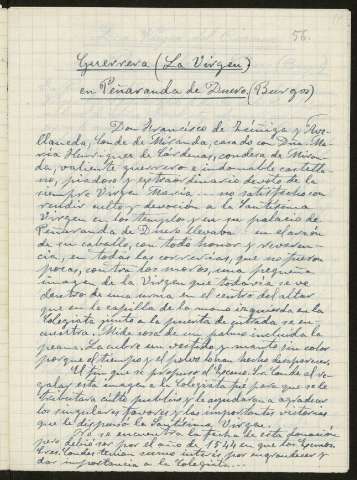 56.
Guerrera (La Virgen)
en Peñaranda de Duero (Burgos)
Don Francisco de Zúñiga y Ave-
llaneda, Conde de Miranda, casado con Dña Ma-
ría Henriquez de Cárdenas, condesa de Miran-
da, valiente guerrero e indomable castella-
no, piadoso y extraordinario devoto de la
siempre Virgen María — no satisfecho con
rendir culto y devoción a la Santísima
Virgen en los templos y en su palacio de
Peñaranda de Duero llevaba en el arzón
de su caballo, con todo honor y reveren-
cia, en todas las correrías, que no fueron
pocas, contra los moros, una pequeña
imagen de la Virgen que todavía se ve
dentro de una urna en el centro del altar
que en la capilla de la mano izquierda en la
Colegiata junto a la puerta de entrada se en-
cuentra. Mide cosa de un palmo incluida la
peana. La cubre un vestido y manto sin color
porque el tiempo y el polvo lo han hecho desaparecer.
El fin que se propuso el Excmo. Sr. Conde al re-
galar esta imagen a la Colegiata fué para que se le
tributara culto público y le ayudaran a agradecer
los singulares favores y las importantes victorias
que le dispensó la Santísima Virgen.
No se encuentra la fecha de esta donación
pero debió ser por el año de 1544 en que los Excmos
Sres. Condes tenían sumo interés por engrandecer y
dar importancia a la Colegiata...